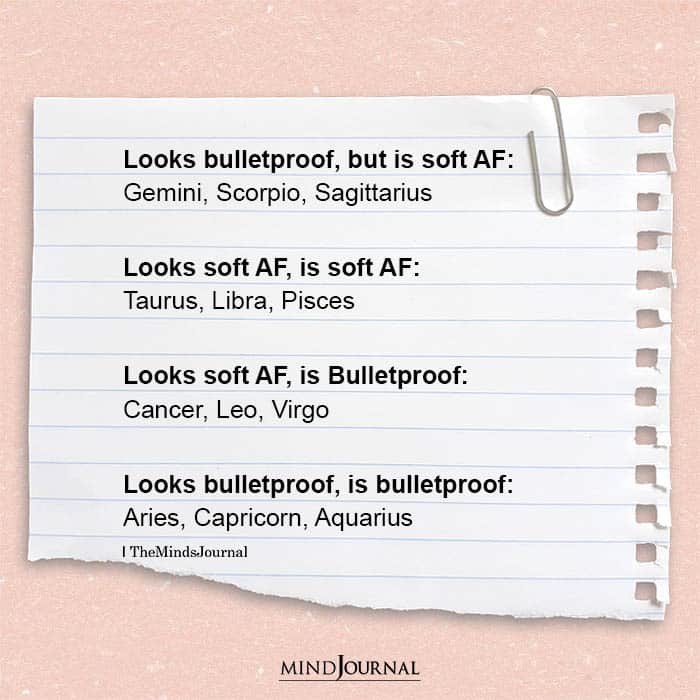 Looks bulletproof, but is soft AF:
Gemini, Scorpio, Sagittarius
Looks soft AF, is soft AF:
Taurus, Libra, Pisces
Looks soft AF, is Bulletproof:
Cancer, Leo, Virgo
Looks bulletproof, is bulletproof:
Aries, Capricorn, Aquarius
| TheMindsJournal
MINDJOURNAL